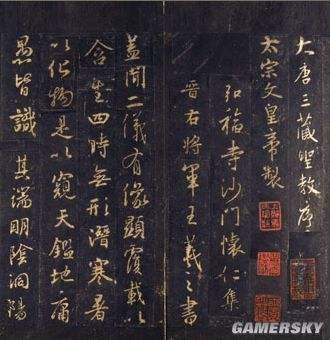 大唐三藏聖教序
太宗文皇帝製
弘福寺沙門懷仁集
晉右將軍王羲之書
蓋聞二儀有像顯覆載以
含生四時無形潛寒暑
以化物是以窺天鑑地庸
愚皆識其端明陰洞陽
GAMERSKY